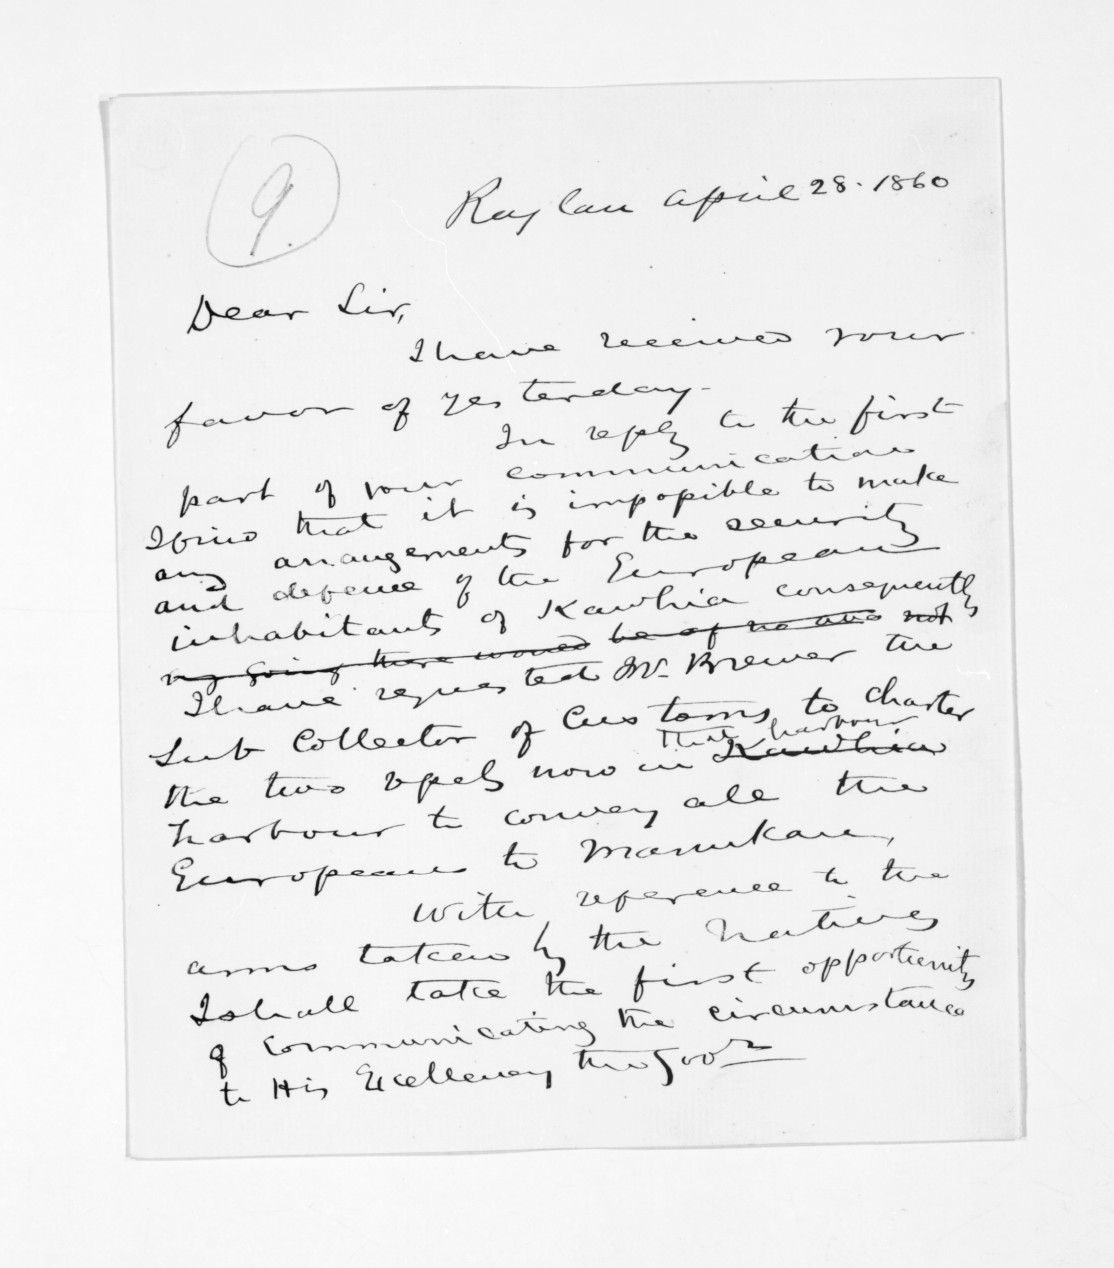 9.
Raglan April 28. 1860
Dear Sir,
I have received your
favor of yesterday.
In reply to the first
part of your communication
I find that it is impossible to make
any arrangements for the security
and defence of the European
inhabitants of Kawhia consequently
my going there would be of no use not
I have requested Mr. Brewer the
Sub Collector of Customs to charter
the two vessels now in Kawhia
that harbour
harbour to convey all the
Europeans to Manukau,
With reference to the
arms taken by the Natives
I shall take the first opportunity
of communicating the circumstance
to His Excellency the Govr